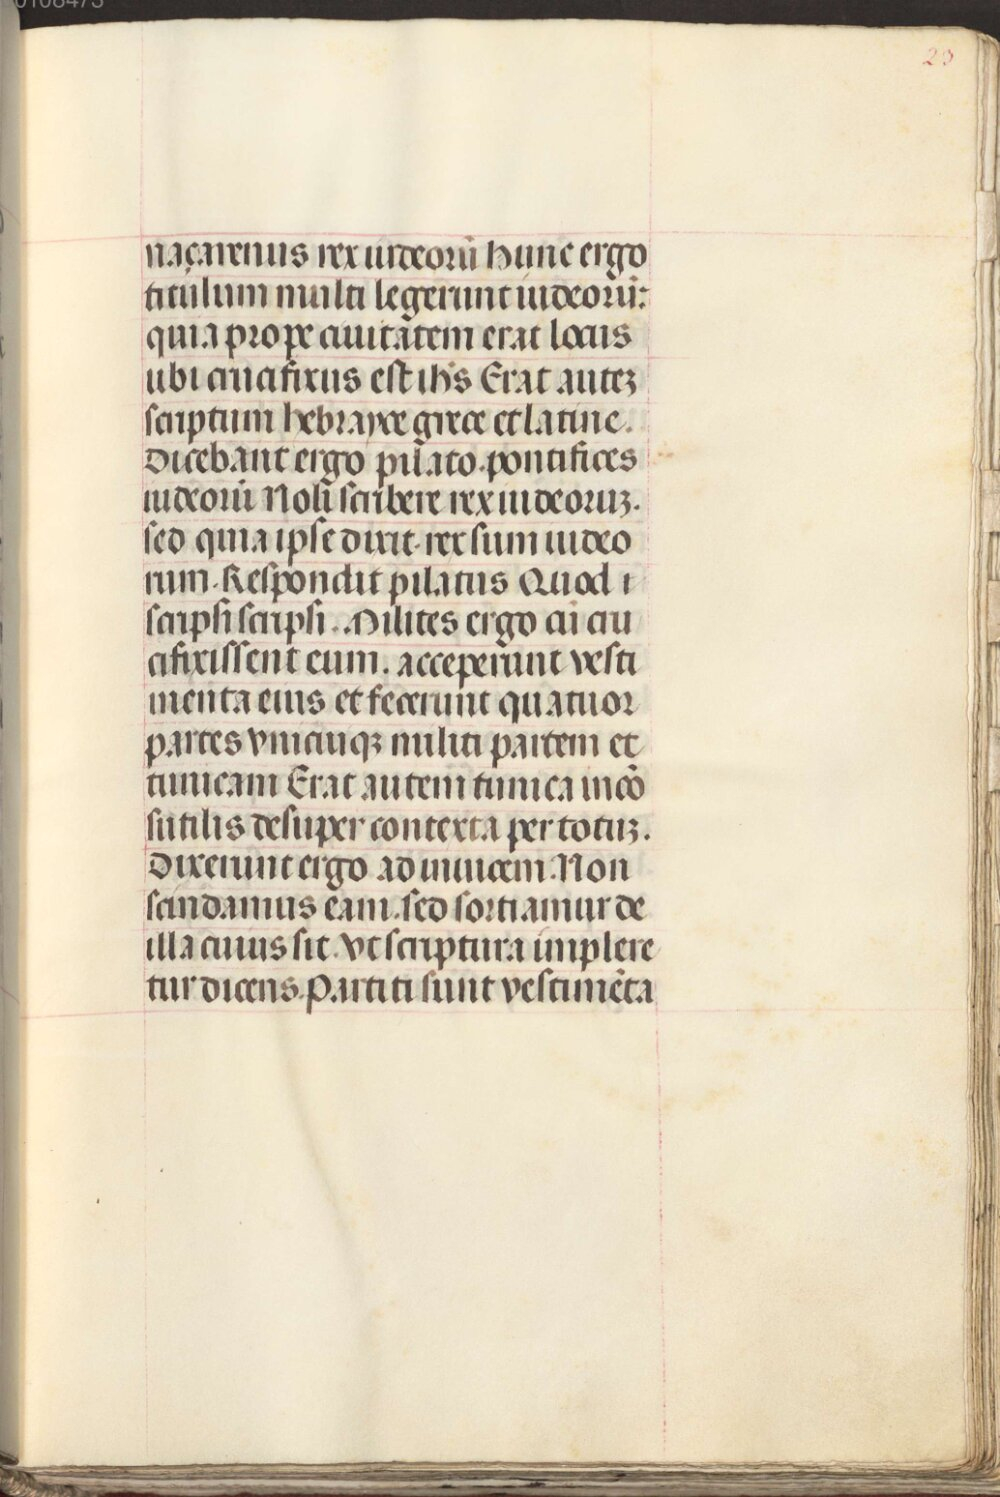 0108473
23
naçarenus rex iudeorū hunc ergo
titulum multi legerunt iudeorū:
quia prope ciuitatem erat locus
ubi crucifixus est ihs Erat auteꝫ
scriptum hebrayce grece et latine.
Dicebant ergo pilato. pontifices
iudeorū Noli scribere rex iudeoruꝫ.
sed quia ipse dixit. rex sum iudeo
rum. Respondit pilatus Quod
scripsi scripsi. Milites ergo cū cru
cifixissent eum. acceperunt vesti
menta eius et fecerunt quatuor
partes vnicuiqꝫ militi partem et
tunicam Erat autem tunica incō
sutilis desuper contexta per totuꝫ.
Dixerunt ergo ad inuicem. Non
scindamus eam. sed sortiamur de
illa cuius sit. vt scriptura implere
tur dicens. Partiti sunt vestimēta